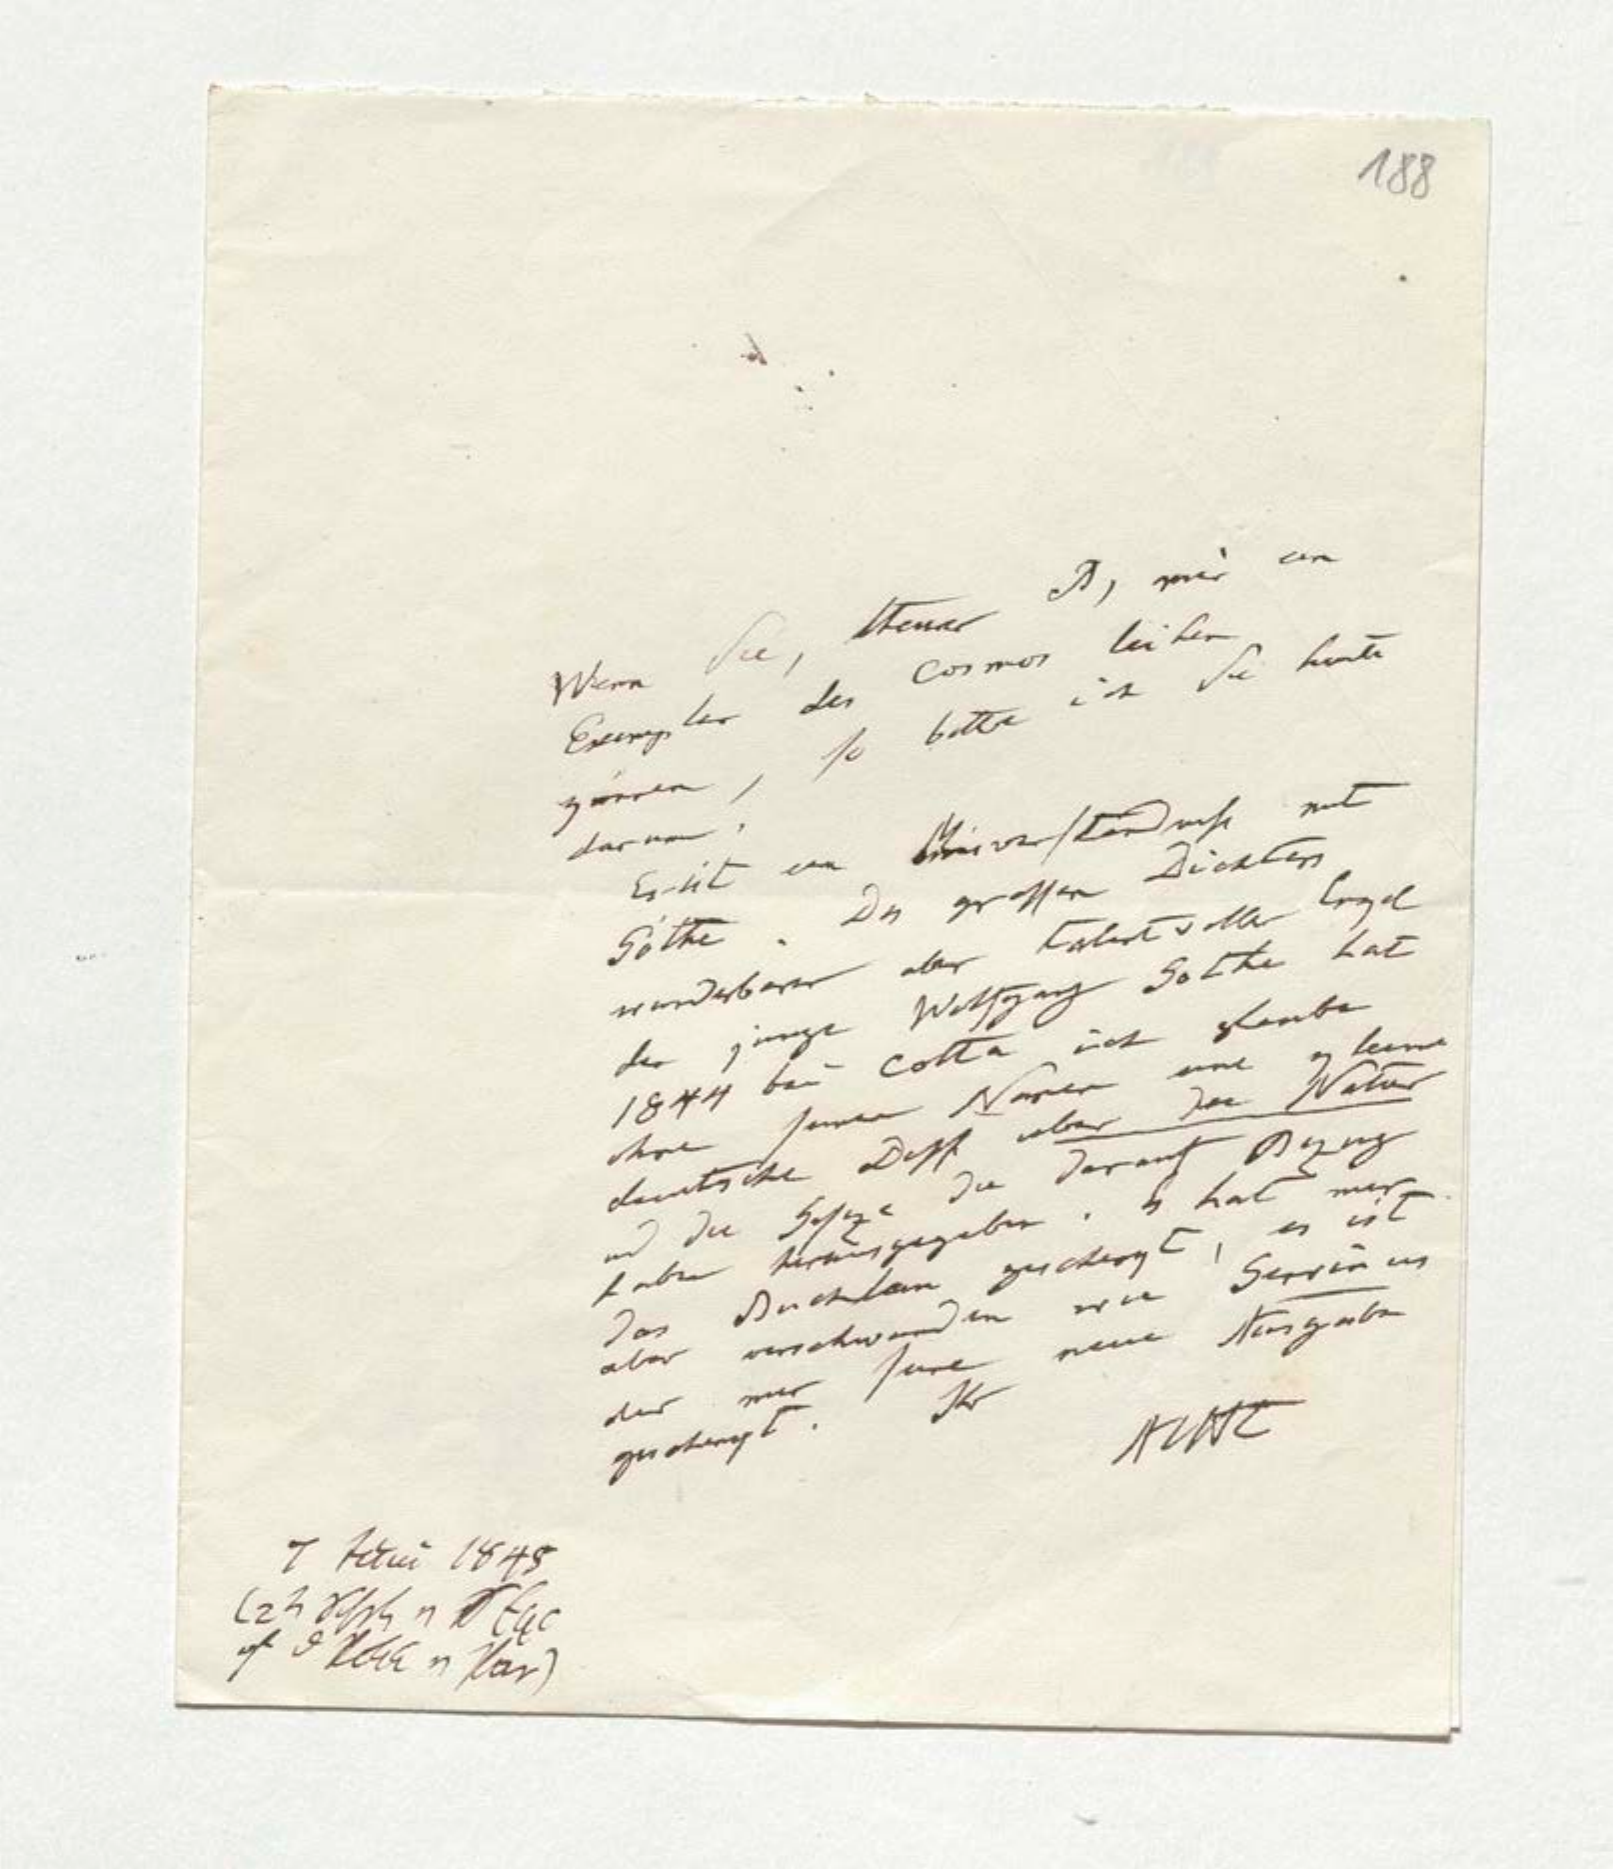 188
Wenn Sie, theurer B, mir ein
Exemplar des Cosmos leihen
können, so bitte ich Sie heute
darum.
Es ist ein Misverständniss mit
Göthe. Des grossen Dichters
wunderbarer aber talentvoller Engel
der junge Wolfgang Göthe hat
1844 bei Cotta ich glaube
ohne seinen Namen eine kleine
deutsche Diss über die Natur
und die Geseze die darauf Bezug
haben herausgegeben. Er hat mir
das Buchlein geschengt, es ist
aber verschwunden wie Gervinus
der mir seine neue Ausgabe
geschengt. Ihr
AvHt
1848